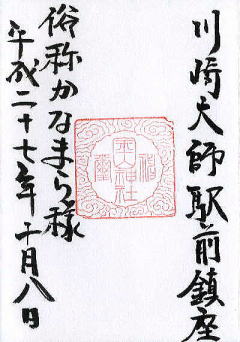 川崎大師駅前鎮座
金山神社
俗称かなまら様
平成二十七年十月八日